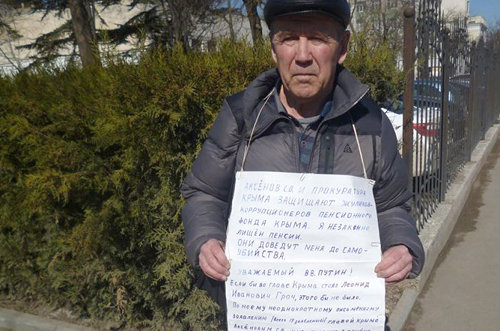 АКСЁНОВ С.В. И ПРОКУРАТУРА
КРЫМА ЗАЩИЩАЮТ ЖУЛИКОВ
КОРРУПЦИОНЕРОВ ПЕНСИОННОГО
ФОНДА КРЫМА. Я НЕЗАКОННО
ЛИШЁН ПЕНСИИ.
ОНИ ДОВЕДУТ МЕНЯ ДО САМО-
УБИЙСТВА.
УВАЖАЕМЫЙ В.В. ПУТИН!
Если бы во главе Крыма стоял Леонид
Иванович Грач, этого бы не было.
По моему неоднократному письменному
заявлению главой Крыма